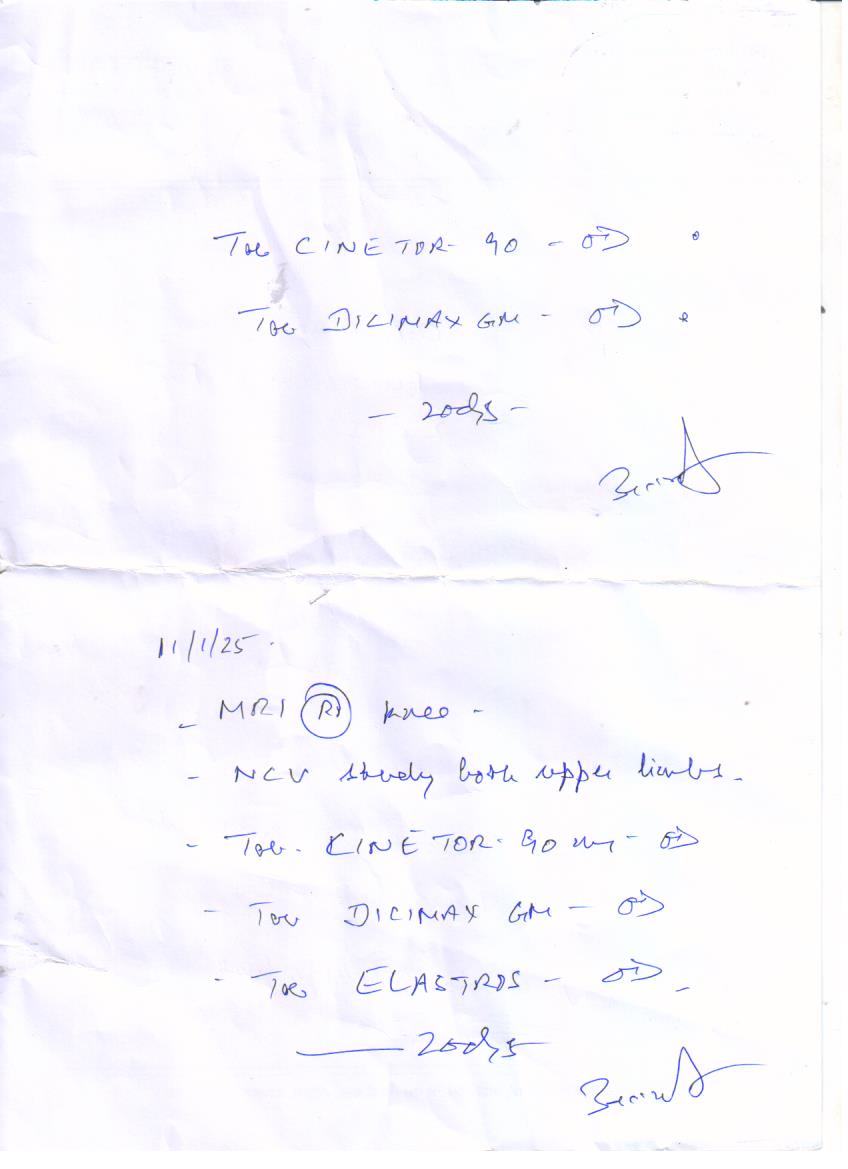 Tab CINETOR- 90 - OD
Tab DICIMAX GM - OD
- 20dys -
11/1/25.
- MRI Rt knee -
- NCV study both upper limbs.
- Tab. CINETOR- 90 mg - OD
- Tab DICIMAX GM - OD
- Tab ELASTROS - OD -
20dys